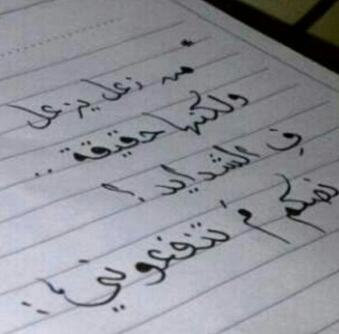 * من زعل يزعل
ولكنها حقيقة ..
ف الشدايد !
نصكم مَ تنفعوني ؛: